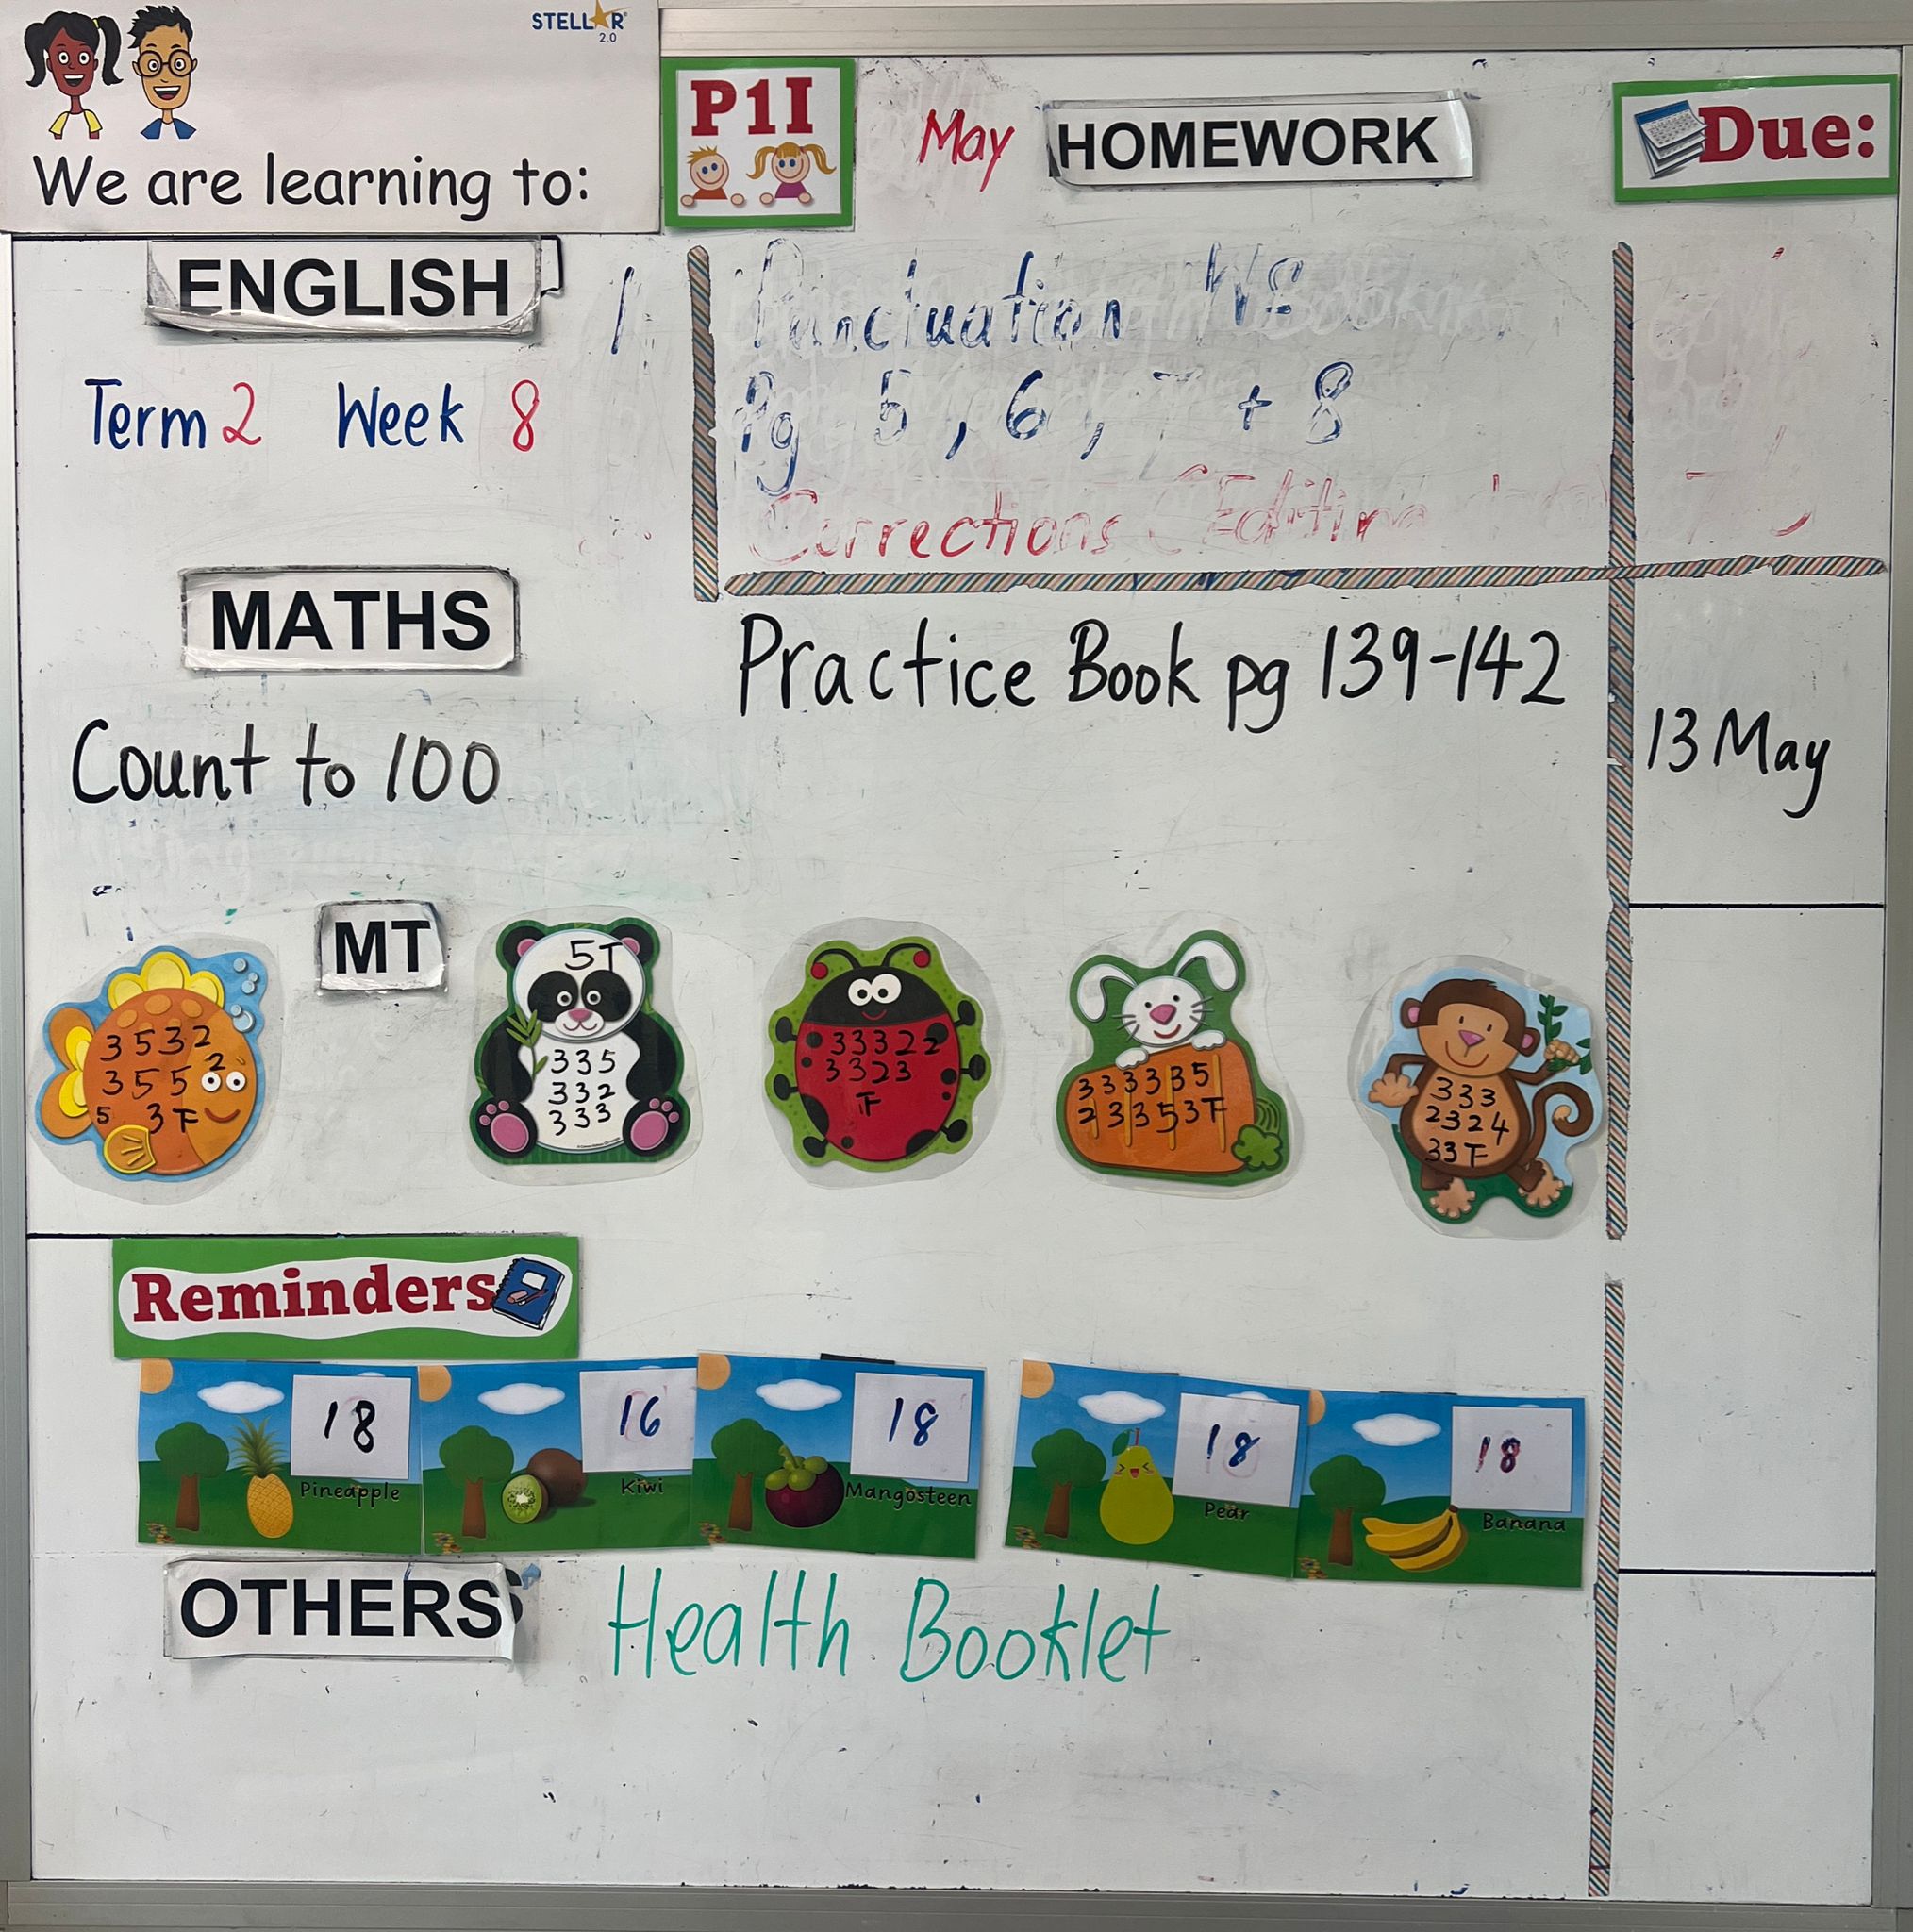 STELLAR 2.0
We are learning to:
P1I
May HOMEWORK
Due:
ENGLISH
Term 2 Week 8
Punctuation
Pg 5, 6, 7 + 8
Corrections (Editing
MATHS
Practice Book pg 139-142
Count to 100
13 May
MT
3532
2
355
5 3 下
5T
335
332
333
33322
3323
下
333335
233533下
333
2324
33下
Reminders
18
Pineapple
16
Kiwi
18
Mangosteen
18
Pear
18
Banana
OTHERS
Health Booklet